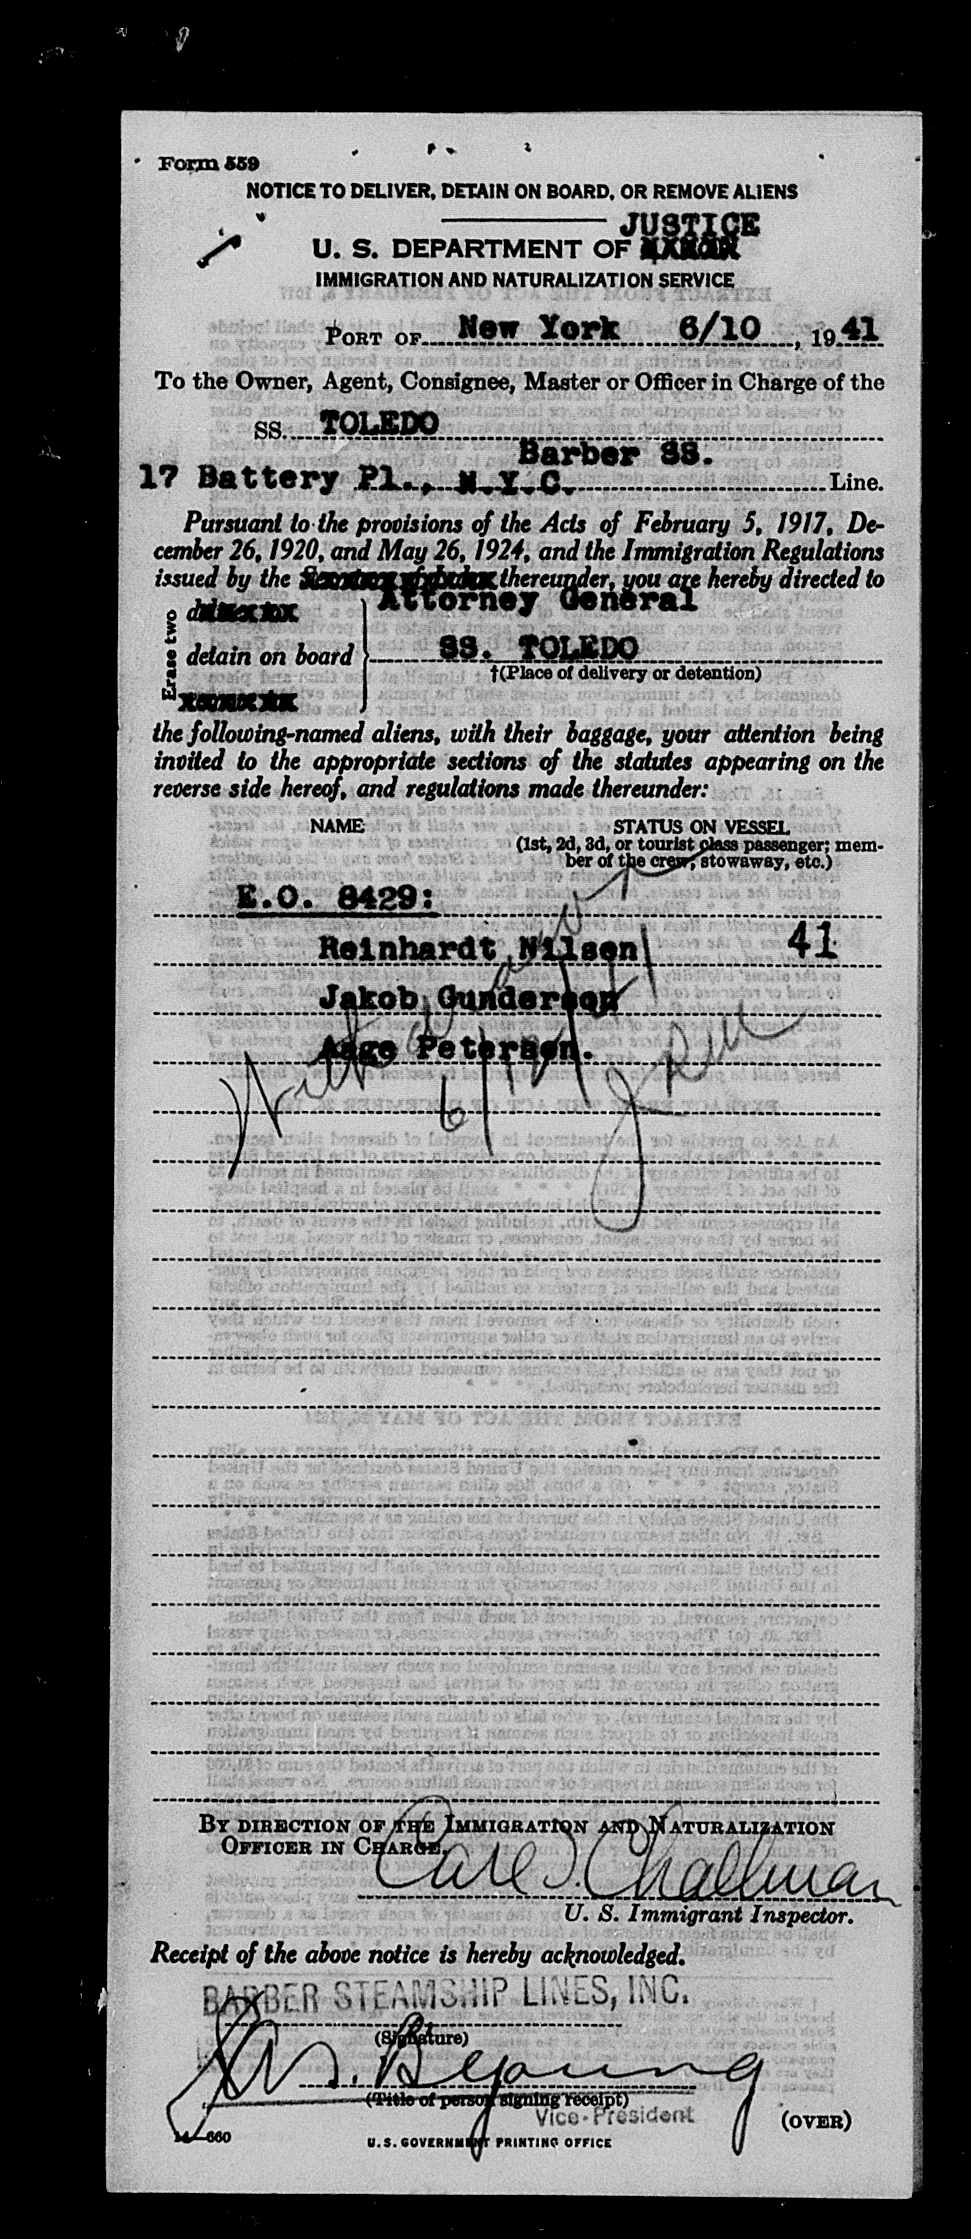 Form 559
NOTICE TO DELIVER, DETAIN ON BOARD, OR REMOVE ALIENS
JUSTICE
U. S. DEPARTMENT OF
IMMIGRATION AND NATURALIZATION SERVICE
PORT OF New York 6/10, 1941
To the Owner, Agent, Consignee, Master or Officer in Charge of the
SS. TOLEDO
Barber SS.
17 Battery Pl., N.Y.C. Line.
Pursuant to the provisions of the Acts of February 5, 1917, De-
cember 26, 1920, and May 26, 1924, and the Immigration Regulations
issued by the thereunder, you are hereby directed to
Attorney General
Erase two
detain on board SS. TOLEDO
†(Place of delivery or detention)
the following-named aliens, with their baggage, your attention being
invited to the appropriate sections of the statutes appearing on the
reverse side hereof, and regulations made thereunder:
NAME STATUS ON VESSEL
(1st, 2d, 3d, or tourist class passenger; mem-
ber of the crew, stowaway, etc.)
E.O. 8429:
Reinhardt Nilsen 41
Jakob Gunderson
Aage Petersen.
BY DIRECTION OF THE IMMIGRATION AND NATURALIZATION
OFFICER IN CHARGE.
Carl J. Challman
U. S. Immigrant Inspector.
Receipt of the above notice is hereby acknowledged.
BARBER STEAMSHIP LINES, INC.
(Signature)
(Title of person signing receipt)
Vice-President
(OVER)
14—660
U. S. GOVERNMENT PRINTING OFFICE